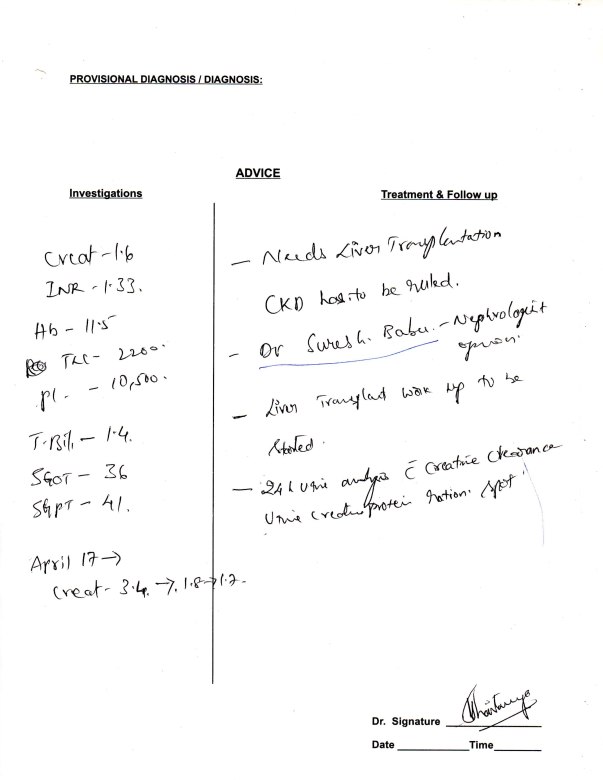 PROVISIONAL DIAGNOSIS / DIAGNOSIS:
ADVICE
Investigations
Creat - 1.6
INR - 1.33.
Hb - 11.5
TLC - 2200.
Pl. - 10,500.
T.Bil - 1.4.
SGOT - 36
SGPT - 41.
April 17 →
Creat - 3.4. →. 1.8 → 1.7.
Treatment & Follow up
— Needs Liver Transplantation
CKD has to be ruled.
- Dr Suresh. Babu. - Nephrologist
opinion.
- Liver Transplant work up to be
started.
— 24 h Urine analysis c̄ Creatine Clearance
Urine protein spot.
Dr. Signature
Date Time